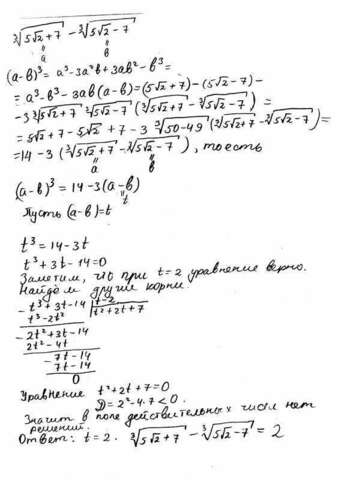 ∛(5√2+7) - ∛(5√2-7)
а в
(a-в)³= a³-3a²в+3aв²-в³=
= a³-в³-3aв(a-в)=(5√2+7)-(5√2-7)-
-3∛(5√2+7) ∛(5√2-7) (∛(5√2+7) -∛(5√2-7)) =
=5√2+7-5√2+7-3 ∛(50-49) (∛(5√2+7) -∛(5√2-7))=
=14-3(∛(5√2+7) -∛(5√2-7)), то есть
а в
(a-в)³=14-3(a-в)
t
Пусть (a-в)=t
t³=14-3t
t³+3t-14=0
Заметим, что при t=2 уравнение верно.
Найдём другие корни
-t³+3t-14 | t-2
t³-2t² | t²+2t+7
-2t²+3t-14
2t²-4t
-7t-14
7t-14
0
Уравнение t²+2t+7=0
D=2²-4·7<0.
Значит в поле действительных чисел нет
решений.
Ответ: t=2. ∛(5√2+7) -∛(5√2-7) = 2